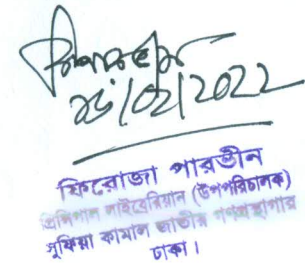 ২৮/02/2022
ফিরোজা পারভীন
প্রিন্সিপাল লাইব্রেরিয়ান (উপপরিচালক)
সুফিয়া কামাল জাতীয় গণগ্রন্থাগার
ঢাকা।